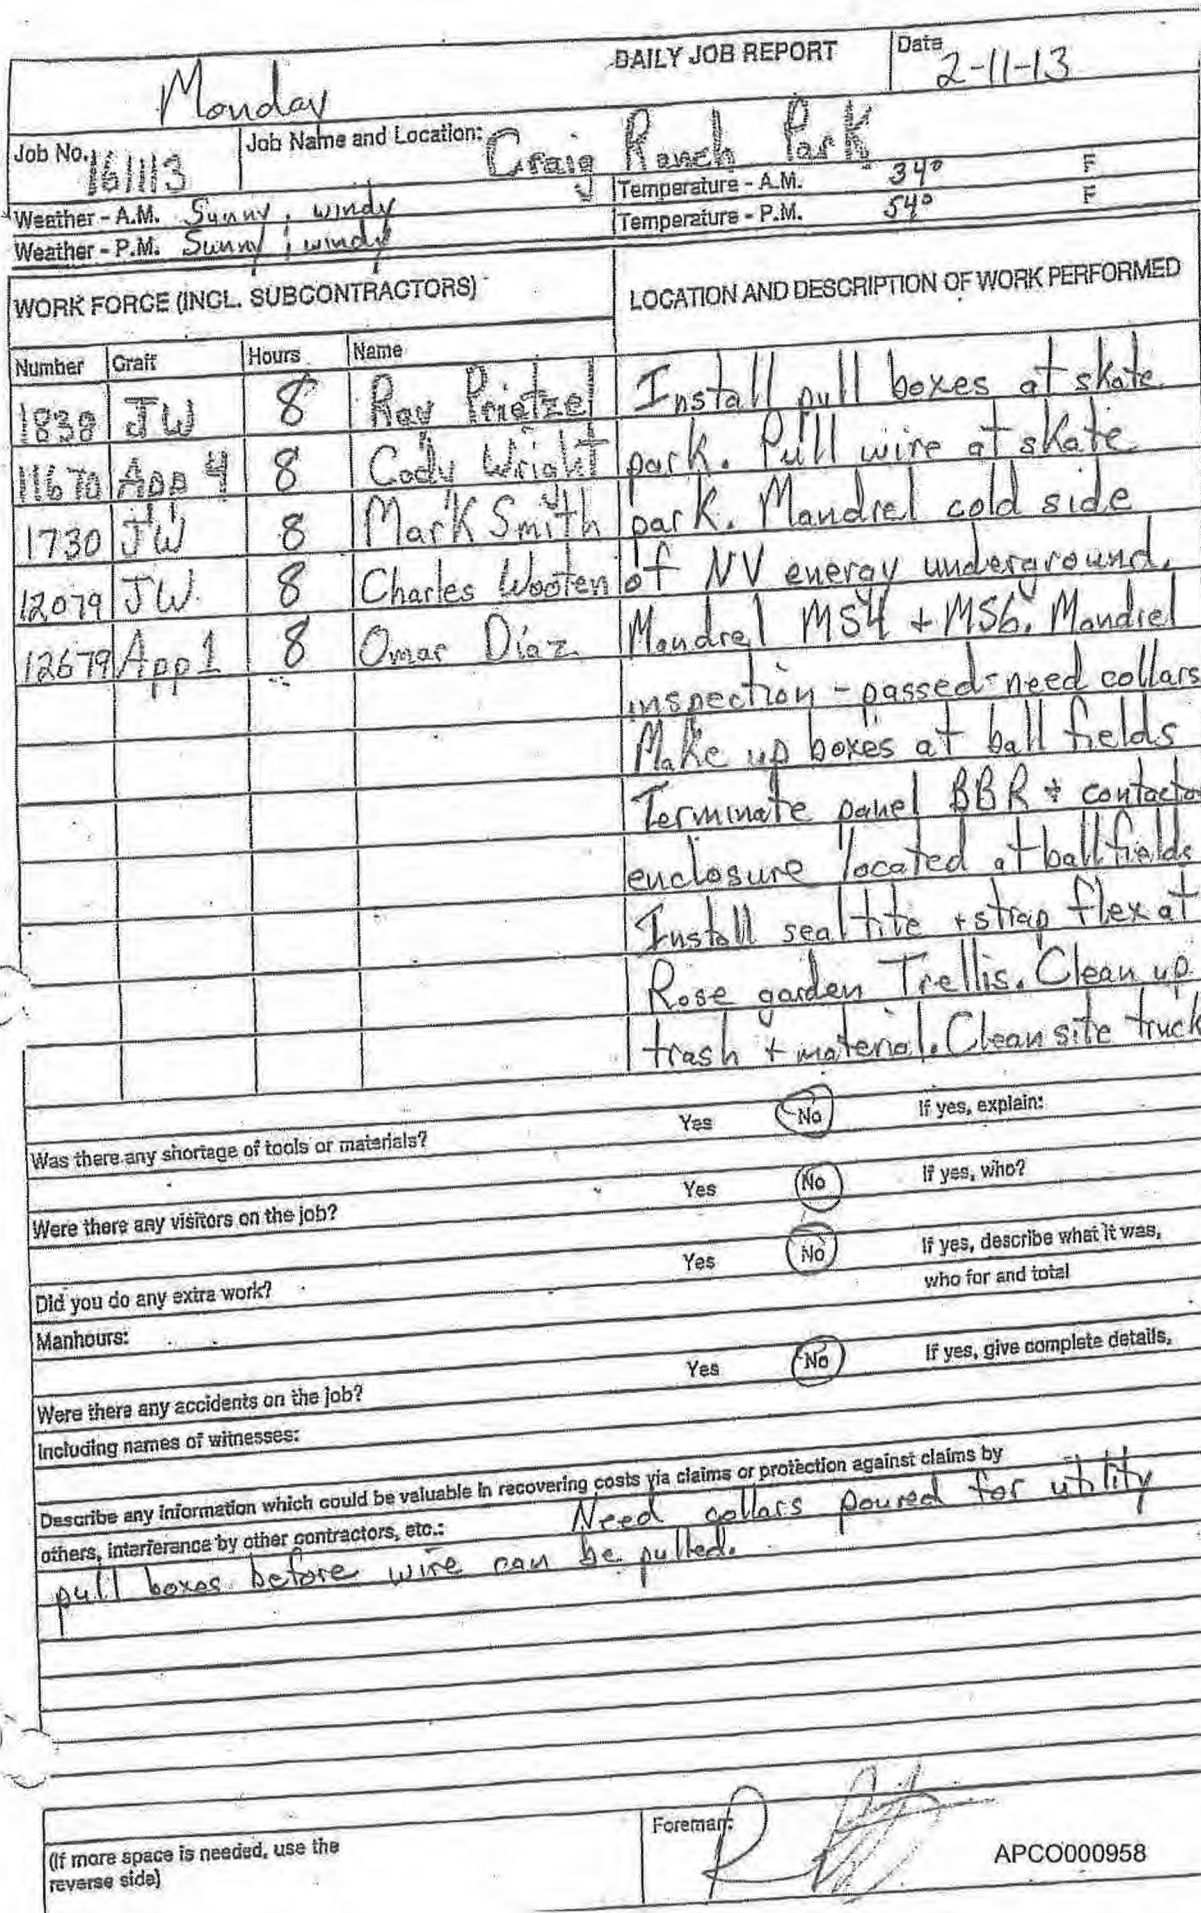 DAILY JOB REPORT
Date
2-11-13
Monday
Job No. 161113
Job Name and Location: Craig Ranch Park
Weather - A.M. Sunny, windy
Temperature - A.M. 34° F
Weather - P.M. Sunny, windy
Temperature - P.M. 54° F
WORK FORCE (INCL. SUBCONTRACTORS)
LOCATION AND DESCRIPTION OF WORK PERFORMED
Number Craft Hours Name
1838 JW 8 Ray Prietzel
11670 App 4 8 Cody Wright
1730 JW 8 Mark Smith
12079 JW 8 Charles Wooten
12679 App 1 8 Omar Diaz
Install pull boxes at skate
park. Pull wire at skate
park. Mandrel cold side
of NV energy underground.
Mandrel MS4 + MS6. Mandrel
inspection - passed - need collars
Make up boxes at ball fields
Terminate panel BBR + contactor
enclosure located at ball fields
Install seal tite + strap flex at
Rose garden Trellis. Clean up
trash + material. Clean site truck
Was there any shortage of tools or materials? Yes No If yes, explain:
Were there any visitors on the job? Yes No If yes, who?
Did you do any extra work? Yes No If yes, describe what it was,
who for and total
Manhours:
Were there any accidents on the job? Yes No If yes, give complete details,
Including names of witnesses:
Describe any information which could be valuable in recovering costs via claims or protection against claims by
others, interference by other contractors, etc.: Need collars poured for utility
pull boxes before wire can be pulled.
(If more space is needed, use the
reverse side)
Foreman:
APCO000958